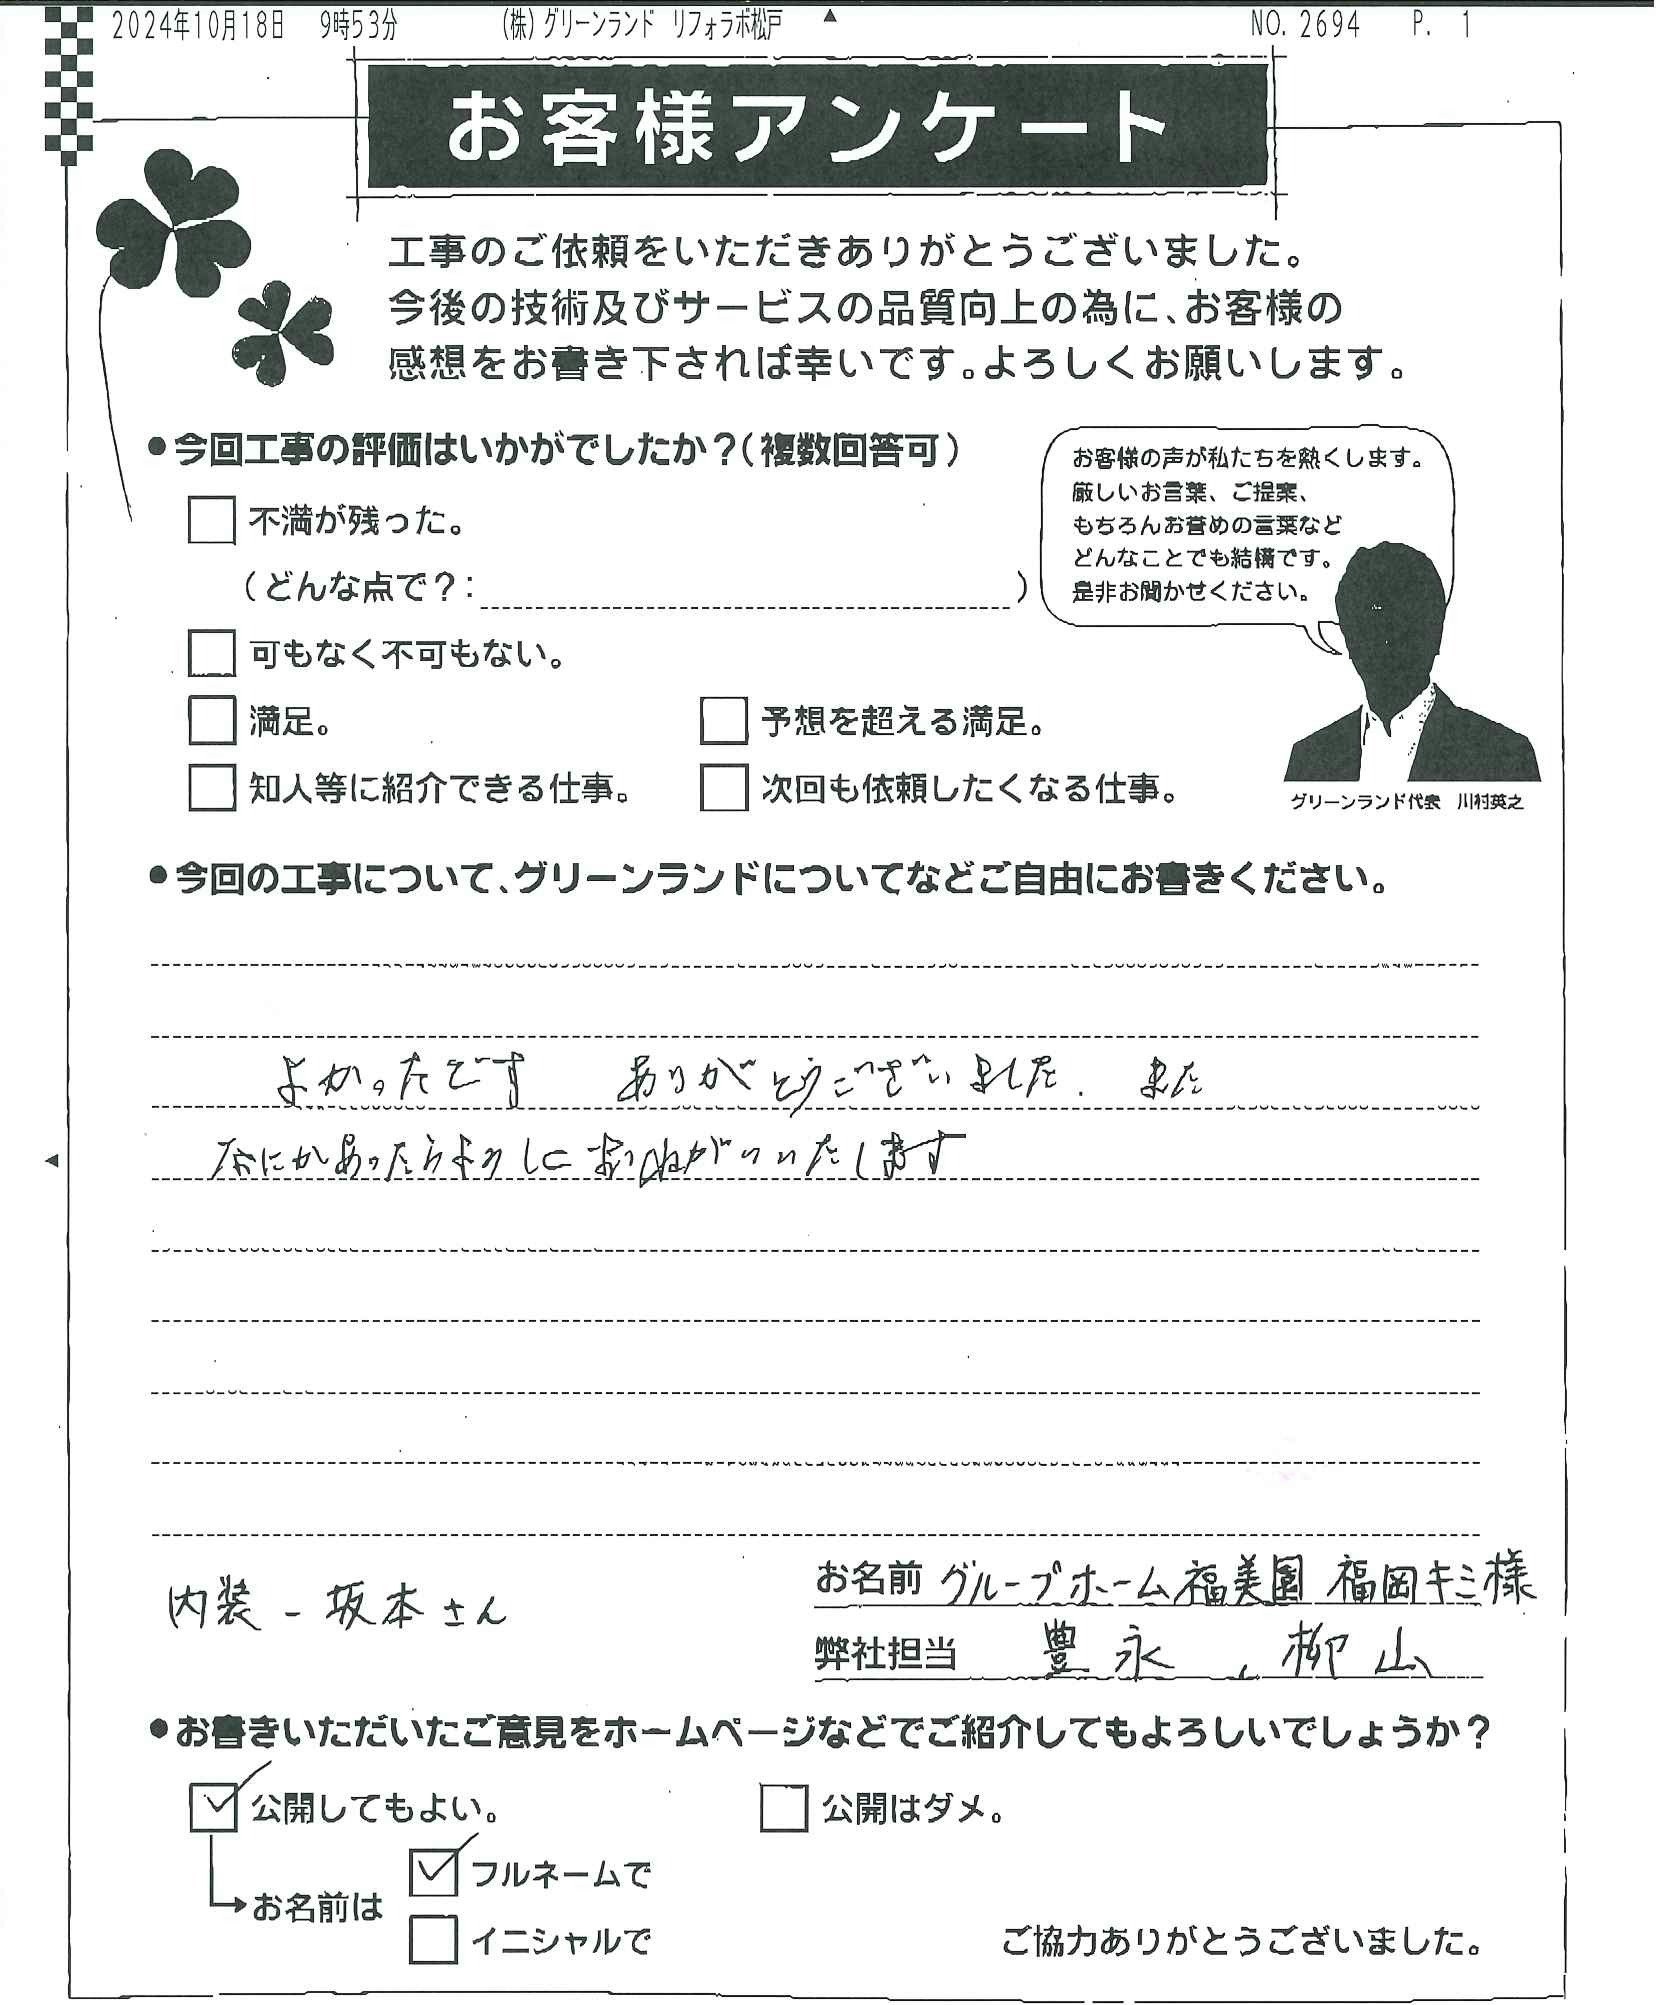 2024年10月18日 9時53分 (株)グリーンランド リフォラボ松戸 NO. 2694 P. 1
お客様アンケート
工事のご依頼をいただきありがとうございました。
今後の技術及びサービスの品質向上の為に、お客様の
感想をお書き下されば幸いです。よろしくお願いします。
●今回工事の評価はいかがでしたか?(複数回答可)
お客様の声が私たちを熱くします。
厳しいお言葉、ご提案、
もちろんお誉めの言葉など
どんなことでも結構です。
是非お聞かせください。
不満が残った。
(どんな点で?: )
可もなく不可もない。
満足。 予想を超える満足。
知人等に紹介できる仕事。 次回も依頼したくなる仕事。
グリーンランド代表 川村英之
●今回の工事について、グリーンランドについてなどご自由にお書きください。
よかったです ありがとうございました. また
なにかあったらよろしくおねがいいたします
お名前 グループホーム福美園 福岡キミ様
内装 - 坂本さん
弊社担当 豊永、柳山
●お書きいただいたご意見をホームページなどでご紹介してもよろしいでしょうか?
公開してもよい。 公開はダメ。
フルネームで
お名前は
イニシャルで
ご協力ありがとうございました。